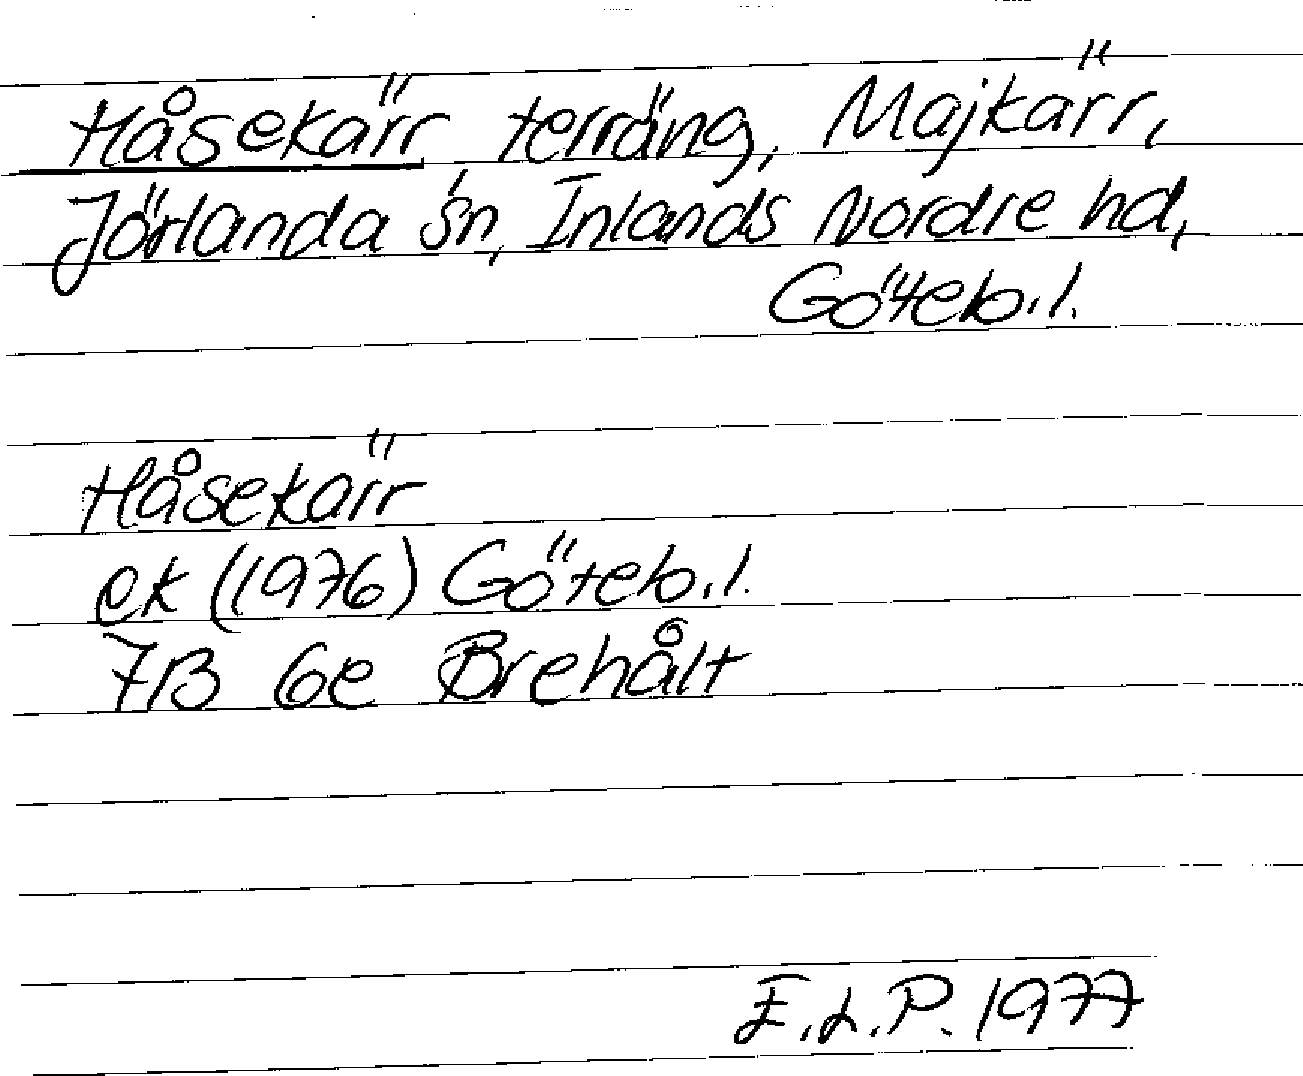 Håsekärr terräng, Majkärr,
Jörlanda sn, Inlands Nordre hd,
Göteb.l.
Håsekärr
ek (1976) Göteb.l.
7B 6e Brehålt
E.L.P. 1977